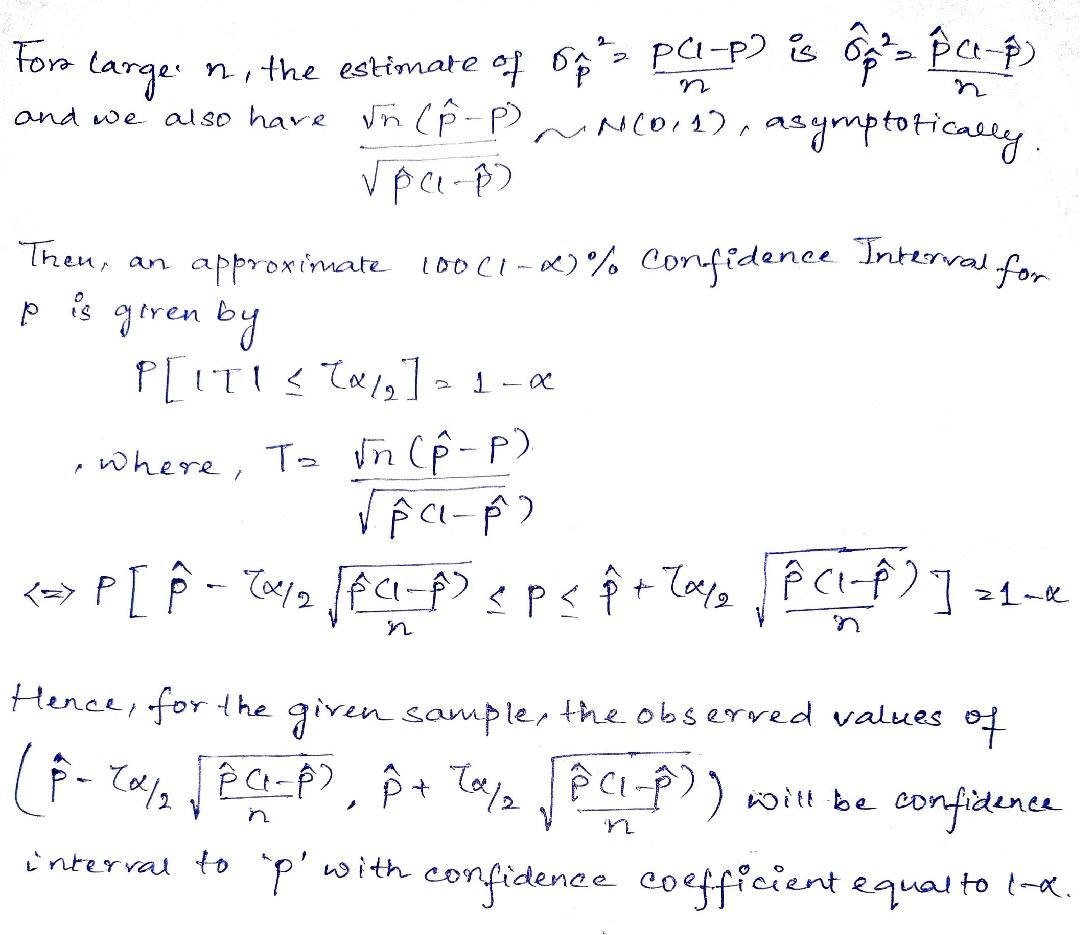 For large n, the estimate of σ_p̂² = p(1-p)/n is σ̂_p̂² = p̂(1-p̂)/n
and we also have √n (p̂-p)/√p̂(1-p̂) ~ N(0,1), asymptotically.
Then, an approximate 100(1-α)% Confidence Interval for
p is given by
P[|T| ≤ τα/2] = 1-α
, where, T = √n (p̂-p)/√p̂(1-p̂)
<=> P[p̂ - τα/2 √(p̂(1-p̂)/n) ≤ p ≤ p̂ + τα/2 √(p̂(1-p̂)/n)] = 1-α
Hence, for the given sample, the observed values of
(p̂ - τα/2 √(p̂(1-p̂)/n), p̂ + τα/2 √(p̂(1-p̂)/n)) will be confidence
interval to 'p' with confidence coefficient equal to 1-α.